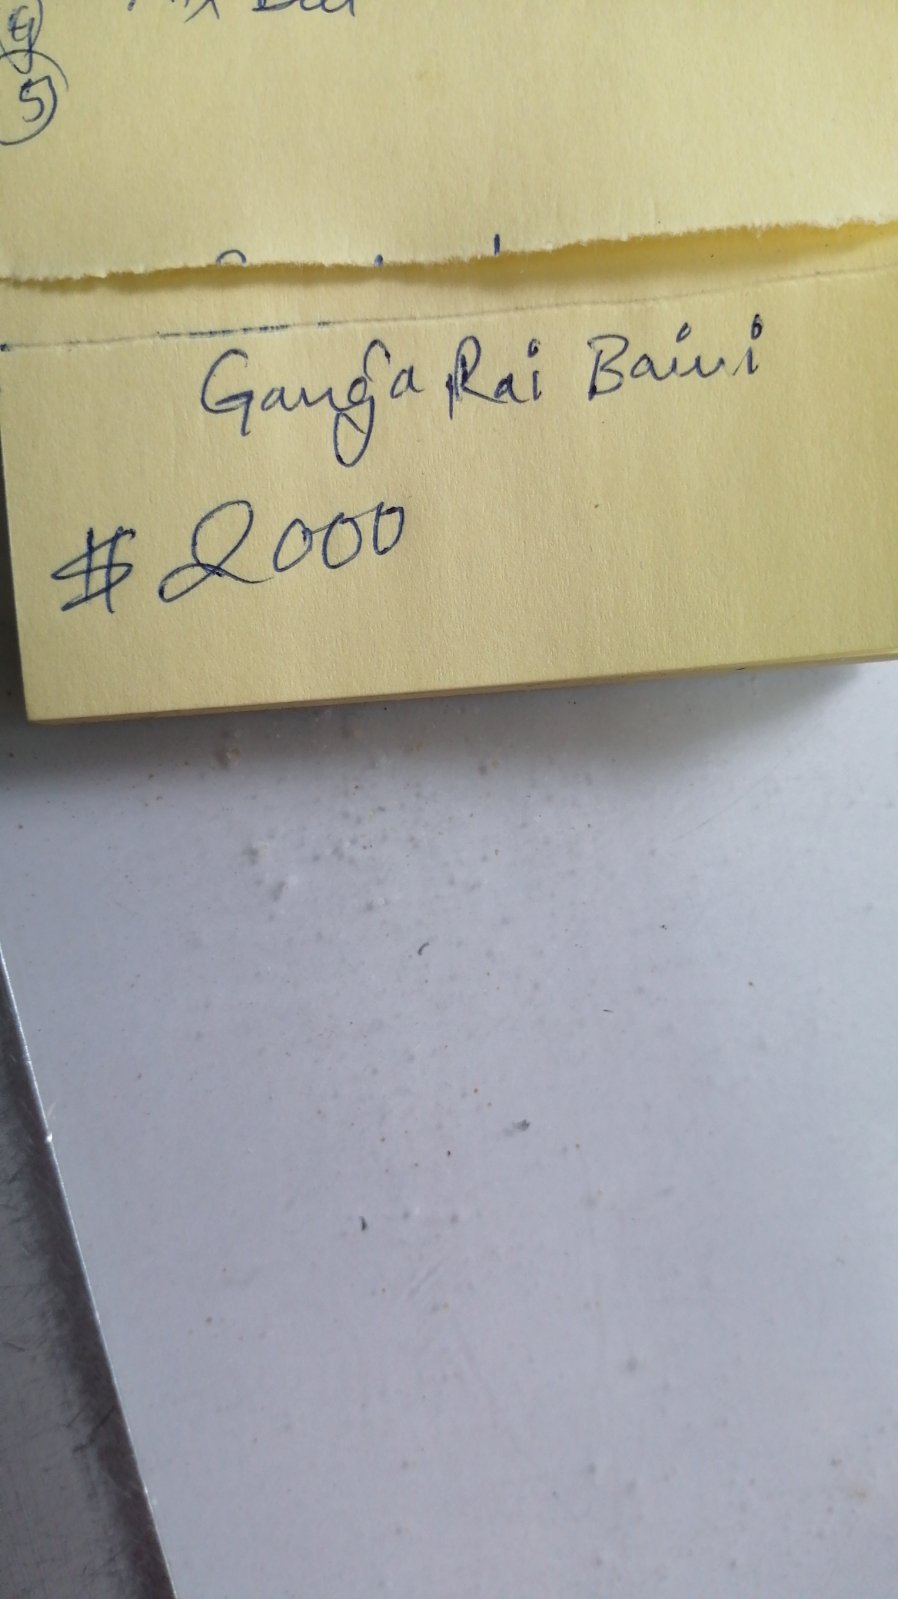 4
5
Ganga Rai Baini
$ 2000